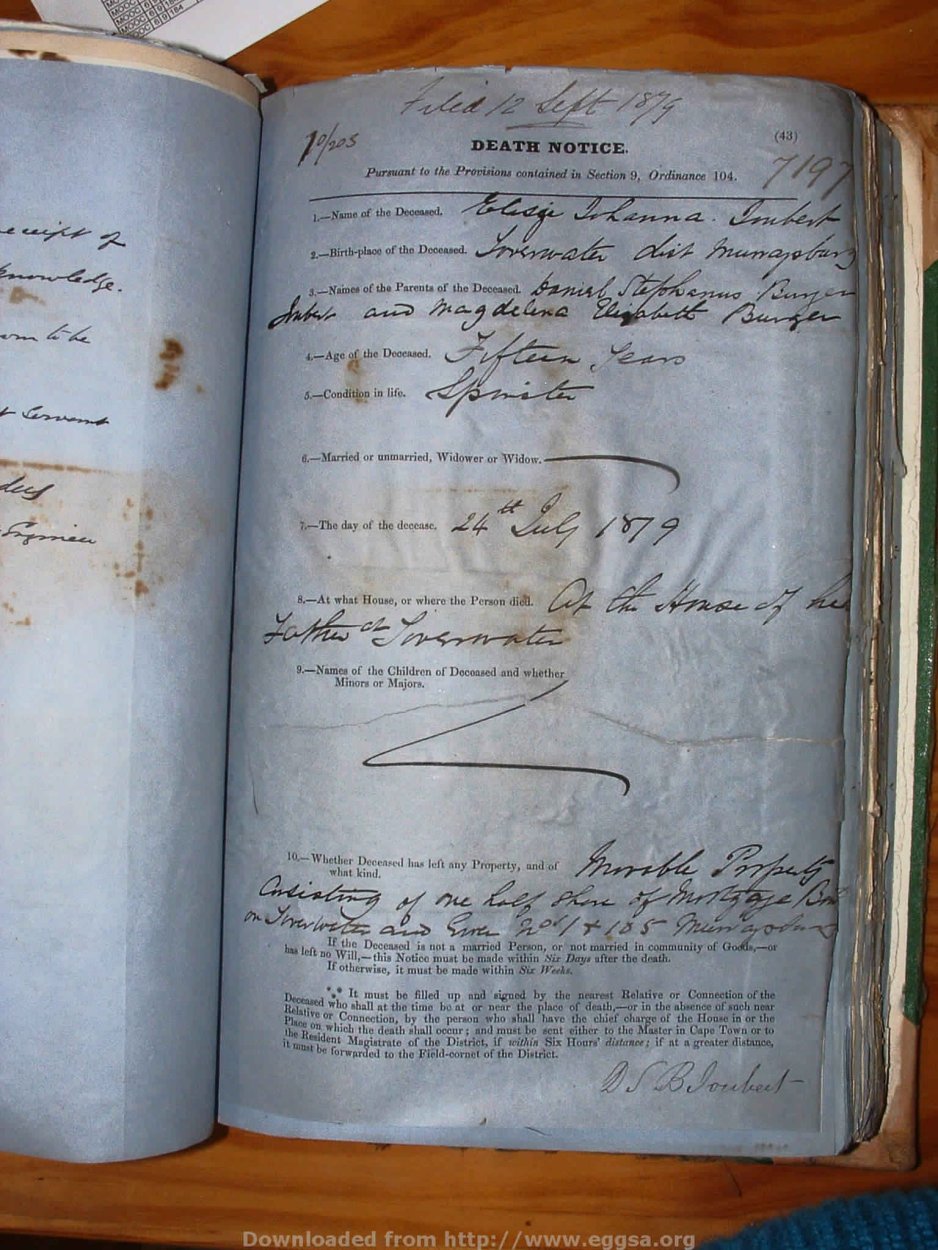 MOOC 6/9/184
eceipt of
knowledge.
to be
t Servant
Engineer
Filed 12 Sept 1879
(43)
DEATH NOTICE.
7197
Pursuant to the Provisions contained in Section 9, Ordinance 104.
1.—Name of the Deceased. Elsije Johanna Joubert
2.—Birth-place of the Deceased. Toverwater dist Murraysburg
3.—Names of the Parents of the Deceased. Daniel Stephanus Burger
Joubert and Magdelena Elizabeth Burger
4.—Age of the Deceased. Fifteen Years
5.—Condition in life. Spinster
6.—Married or unmarried, Widower or Widow.
7.—The day of the decease. 24th July 1879
8.—At what House, or where the Person died. At the House of her
Father at Toverwater
9.—Names of the Children of Deceased and whether
Minors or Majors.
10.—Whether Deceased has left any Property, and of
what kind. Movable Property
Consisting of one half share of Mortgage Bond
on Toverwater and Erven Nos 1 & 185 Murraysburg
If the Deceased is not a married Person, or not married in community of Goods,—or
has left no Will,—this Notice must be made within Six Days after the death.
If otherwise, it must be made within Six Weeks.
*** It must be filled up and signed by the nearest Relative or Connection of the
Deceased who shall at the time be at or near the place of death,—or in the absence of such near
Relative or Connection, by the person who shall have the chief charge of the House in or the
Place on which the death shall occur; and must be sent either to the Master in Cape Town or to
the Resident Magistrate of the District, if within Six Hours' distance; if at a greater distance,
it must be forwarded to the Field-cornet of the District.
D S B Joubert
Downloaded from http://www.eggsa.org